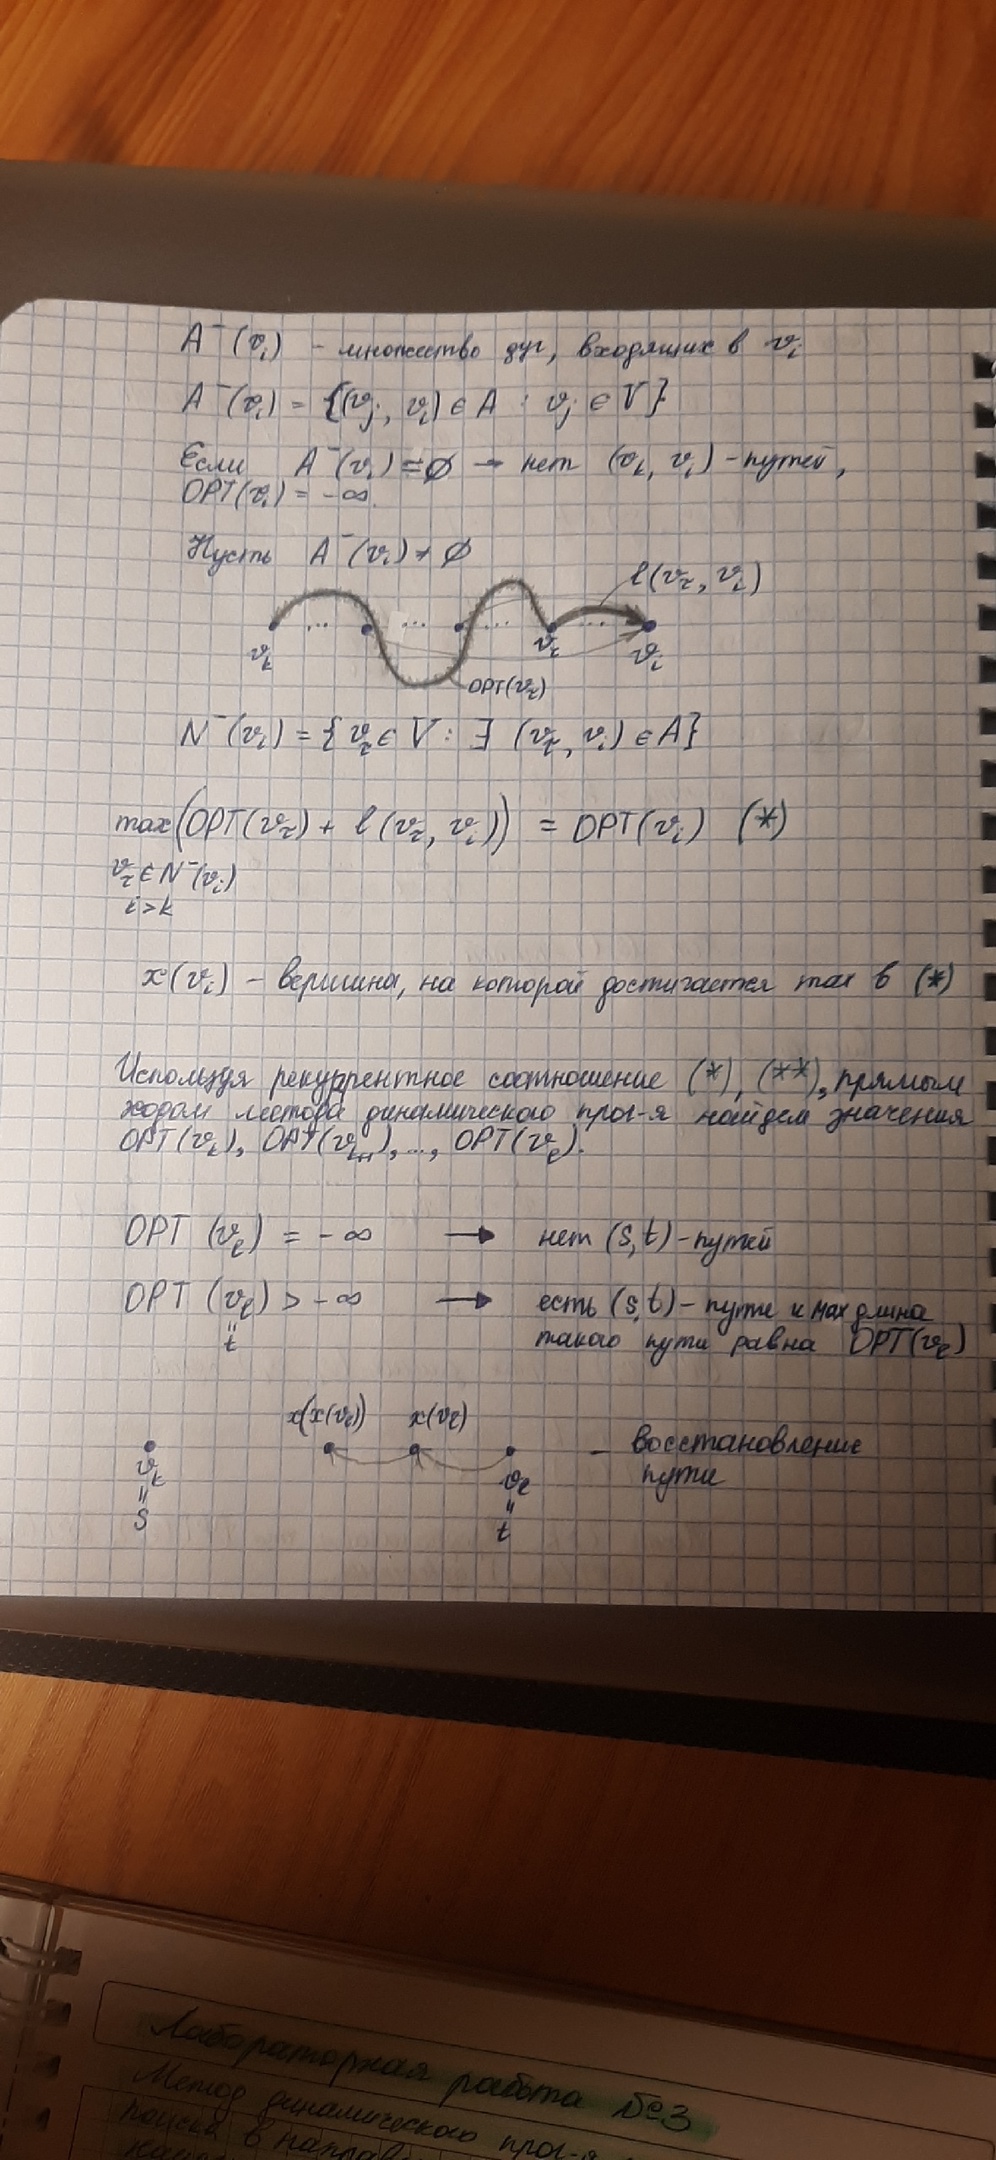 A⁻(vᵢ) - множество дуг, входящих в vᵢ
A⁻(vᵢ) = {(vⱼ, vᵢ) ∈ A : vⱼ ∈ V}
Если A⁻(vᵢ) = ∅ → нет (vₖ, vᵢ) - путей,
OPT(vᵢ) = -∞.
Пусть A⁻(vᵢ) ≠ ∅
l(vᵣ, vᵢ)
... ... ... ...
vₖ vᵣ vᵢ
OPT(vᵣ)
N⁻(vᵢ) = {vᵣ ∈ V : ∃ (vᵣ, vᵢ) ∈ A}
max(OPT(vᵣ) + l(vᵣ, vᵢ)) = OPT(vᵢ) (*)
vᵣ ∈ N⁻(vᵢ)
i > k
x(vᵢ) - вершина, на которой достигается max в (*)
Используя рекуррентное соотношение (*), (**), прямым
ходом метода динамического прог-я найдем значения
OPT(vₖ), OPT(vₖ₊₁), ..., OPT(vₗ).
OPT (vₗ) = -∞ → нет (s,t) - путей
OPT (vₗ) > -∞ → есть (s,t) - пути и max длина
" такого пути равна OPT(vₗ)
t
x(x(vₗ)) x(vₗ)
- восстановление
vₖ vₗ пути
" "
s t
Лабораторная работа №3
Метод динамического прог-я
поиска в направ